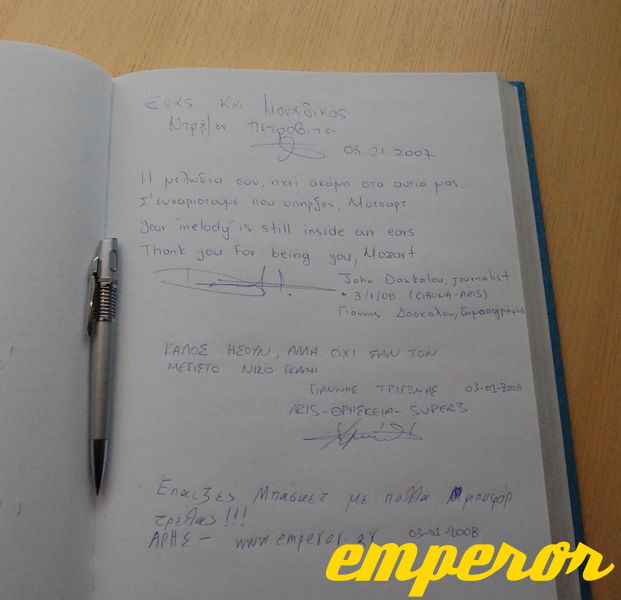 Ενας και Μοναδικός
Ντράζεν Πέτροβιτς.
03.01.2007
Η μελωδία σου, ηχεί ακόμη στα αυτιά μας
Σ' ευχαριστουμε που υπήρξες, Μότσαρτ
Your "melody" is still inside our ears
Thank you for being you, Mozart
John Daskalou, journalist
3/1/08 (CIBONA-ARIS)
Γιάννης Δασκάλου, δημοσιογράφος
ΚΑΛΟΣ ΗΣΟΥΝ, ΑΛΛΑ ΟΧΙ ΣΑΝ ΤΟΝ
ΜΕΓΙΣΤΟ ΝΙΚΟ ΓΚΑΛΗ
ΓΙΑΝΝΗΣ ΤΡΙΓΩΝΗΣ 03-01-2008
ARIS-ΘΡΗΣΚΕΙΑ-SUPER3
Επαιξες Μπάσκετ με πολλά Μποφόρ
τρελας!!!
ΑΡΗΣ - www.emperor.gr 03-01-2008
emperor